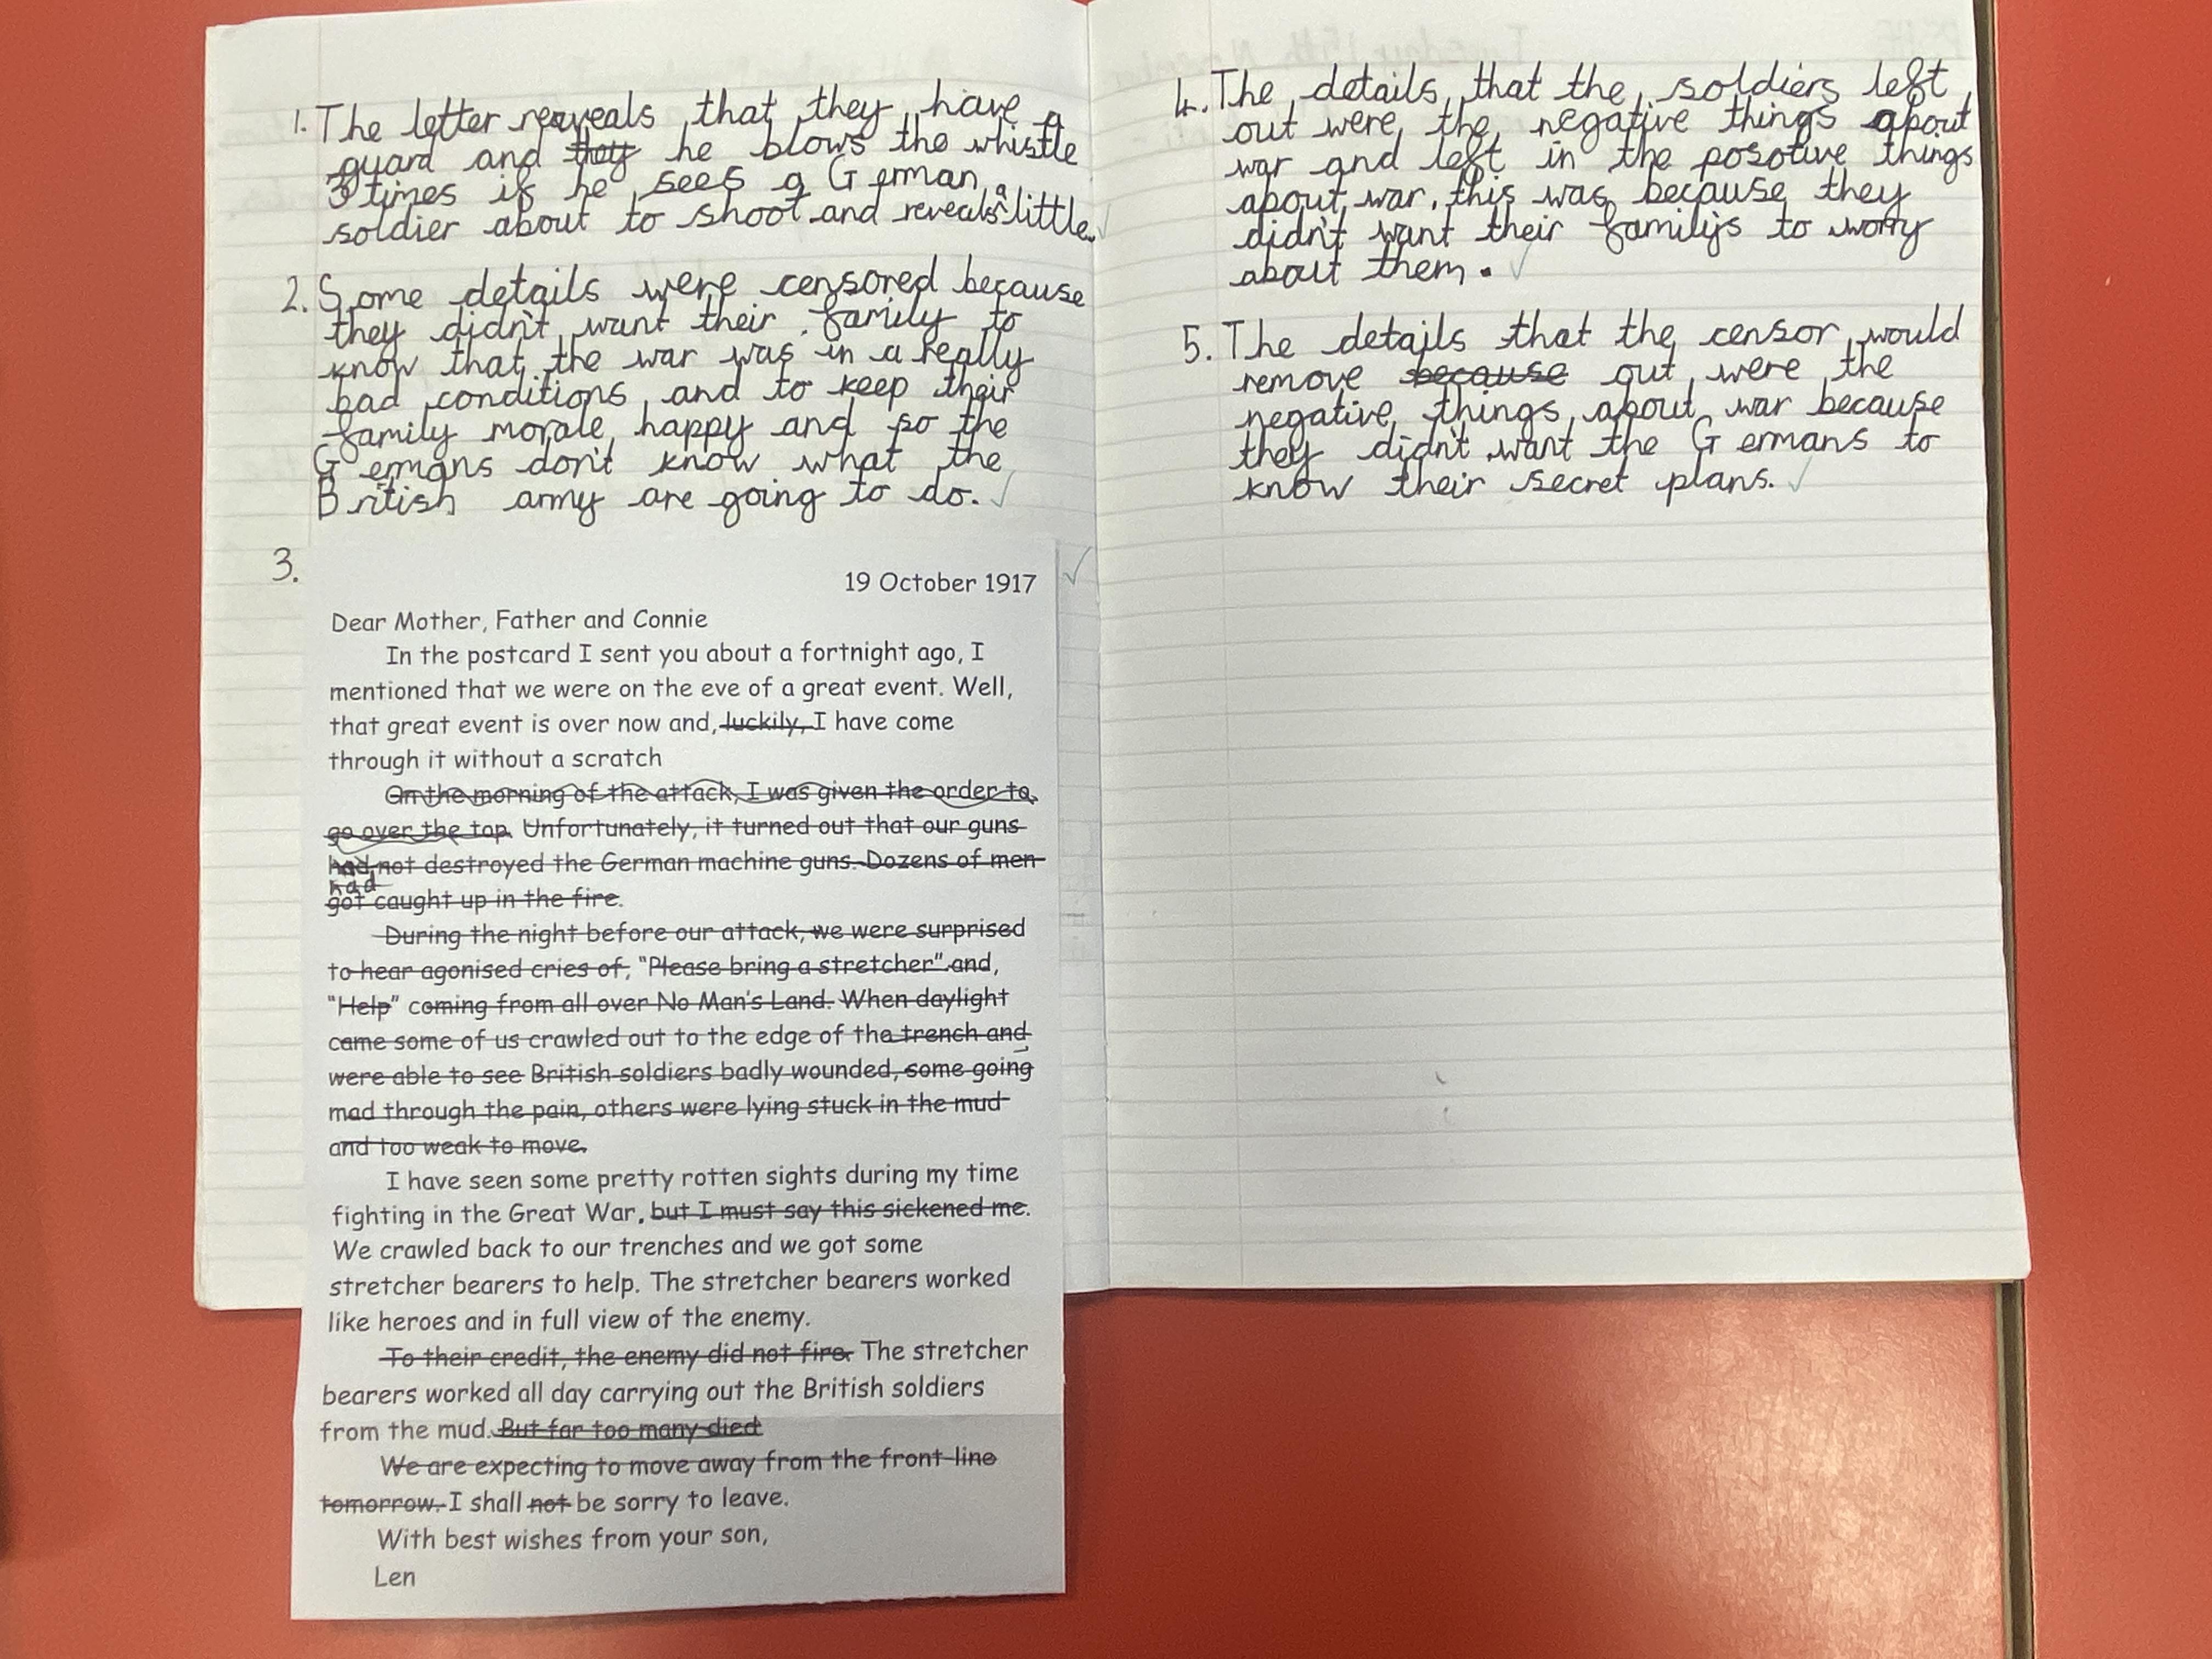 1. The letter reaveals that they have a
guard and they he blows the whistle
3 times if he sees a German
soldier about to shoot and reveals a little.
2. Some details were censored because
they didn't want their family to
know that the war was in a really
bad conditions and to keep their
family morale happy and so the
Germans don't know what the
British army are going to do.
3.
19 October 1917
Dear Mother, Father and Connie
In the postcard I sent you about a fortnight ago, I
mentioned that we were on the eve of a great event. Well,
that great event is over now and, luckily, I have come
through it without a scratch
On the morning of the attack, I was given the order to
go over the top. Unfortunately, it turned out that our guns
had not destroyed the German machine guns. Dozens of men
had
got caught up in the fire.
During the night before our attack, we were surprised
to hear agonised cries of, "Please bring a stretcher" and,
"Help" coming from all over No Man's Land. When daylight
came some of us crawled out to the edge of the trench and
were able to see British soldiers badly wounded, some going
mad through the pain, others were lying stuck in the mud
and too weak to move.
I have seen some pretty rotten sights during my time
fighting in the Great War, but I must say this sickened me.
We crawled back to our trenches and we got some
stretcher bearers to help. The stretcher bearers worked
like heroes and in full view of the enemy.
To their credit, the enemy did not fire. The stretcher
bearers worked all day carrying out the British soldiers
from the mud. But far too many died
We are expecting to move away from the front line
tomorrow. I shall not be sorry to leave.
With best wishes from your son,
Len
4. The details that the soldiers left
out were the negative things about
war and left in the posotive things
about war, this was because they
didn't want their familys to worry
about them.
5. The details that the censor would
remove because out were the
negative things about war because
they didn't want the Germans to
know their secret plans.